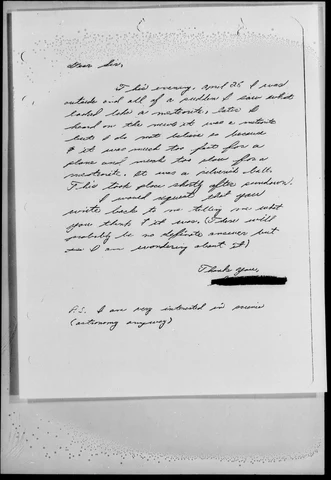 Dear Sir,
This evening, April 25, I was
outside and all of a sudden I saw what
looked like a meteorite, later I
heard on the news it was a
but I do not believe so because
it was much too fast for a
plane and much too slow for a
meteorite. It was a ball.
This took place shortly after sundown.
I would request that you
write back to me telling me what
you think it was. (There will
probably be no definite answer but
I am wondering about it)
Thank you,
P.S. I am very interested in science
(astronomy anyway)